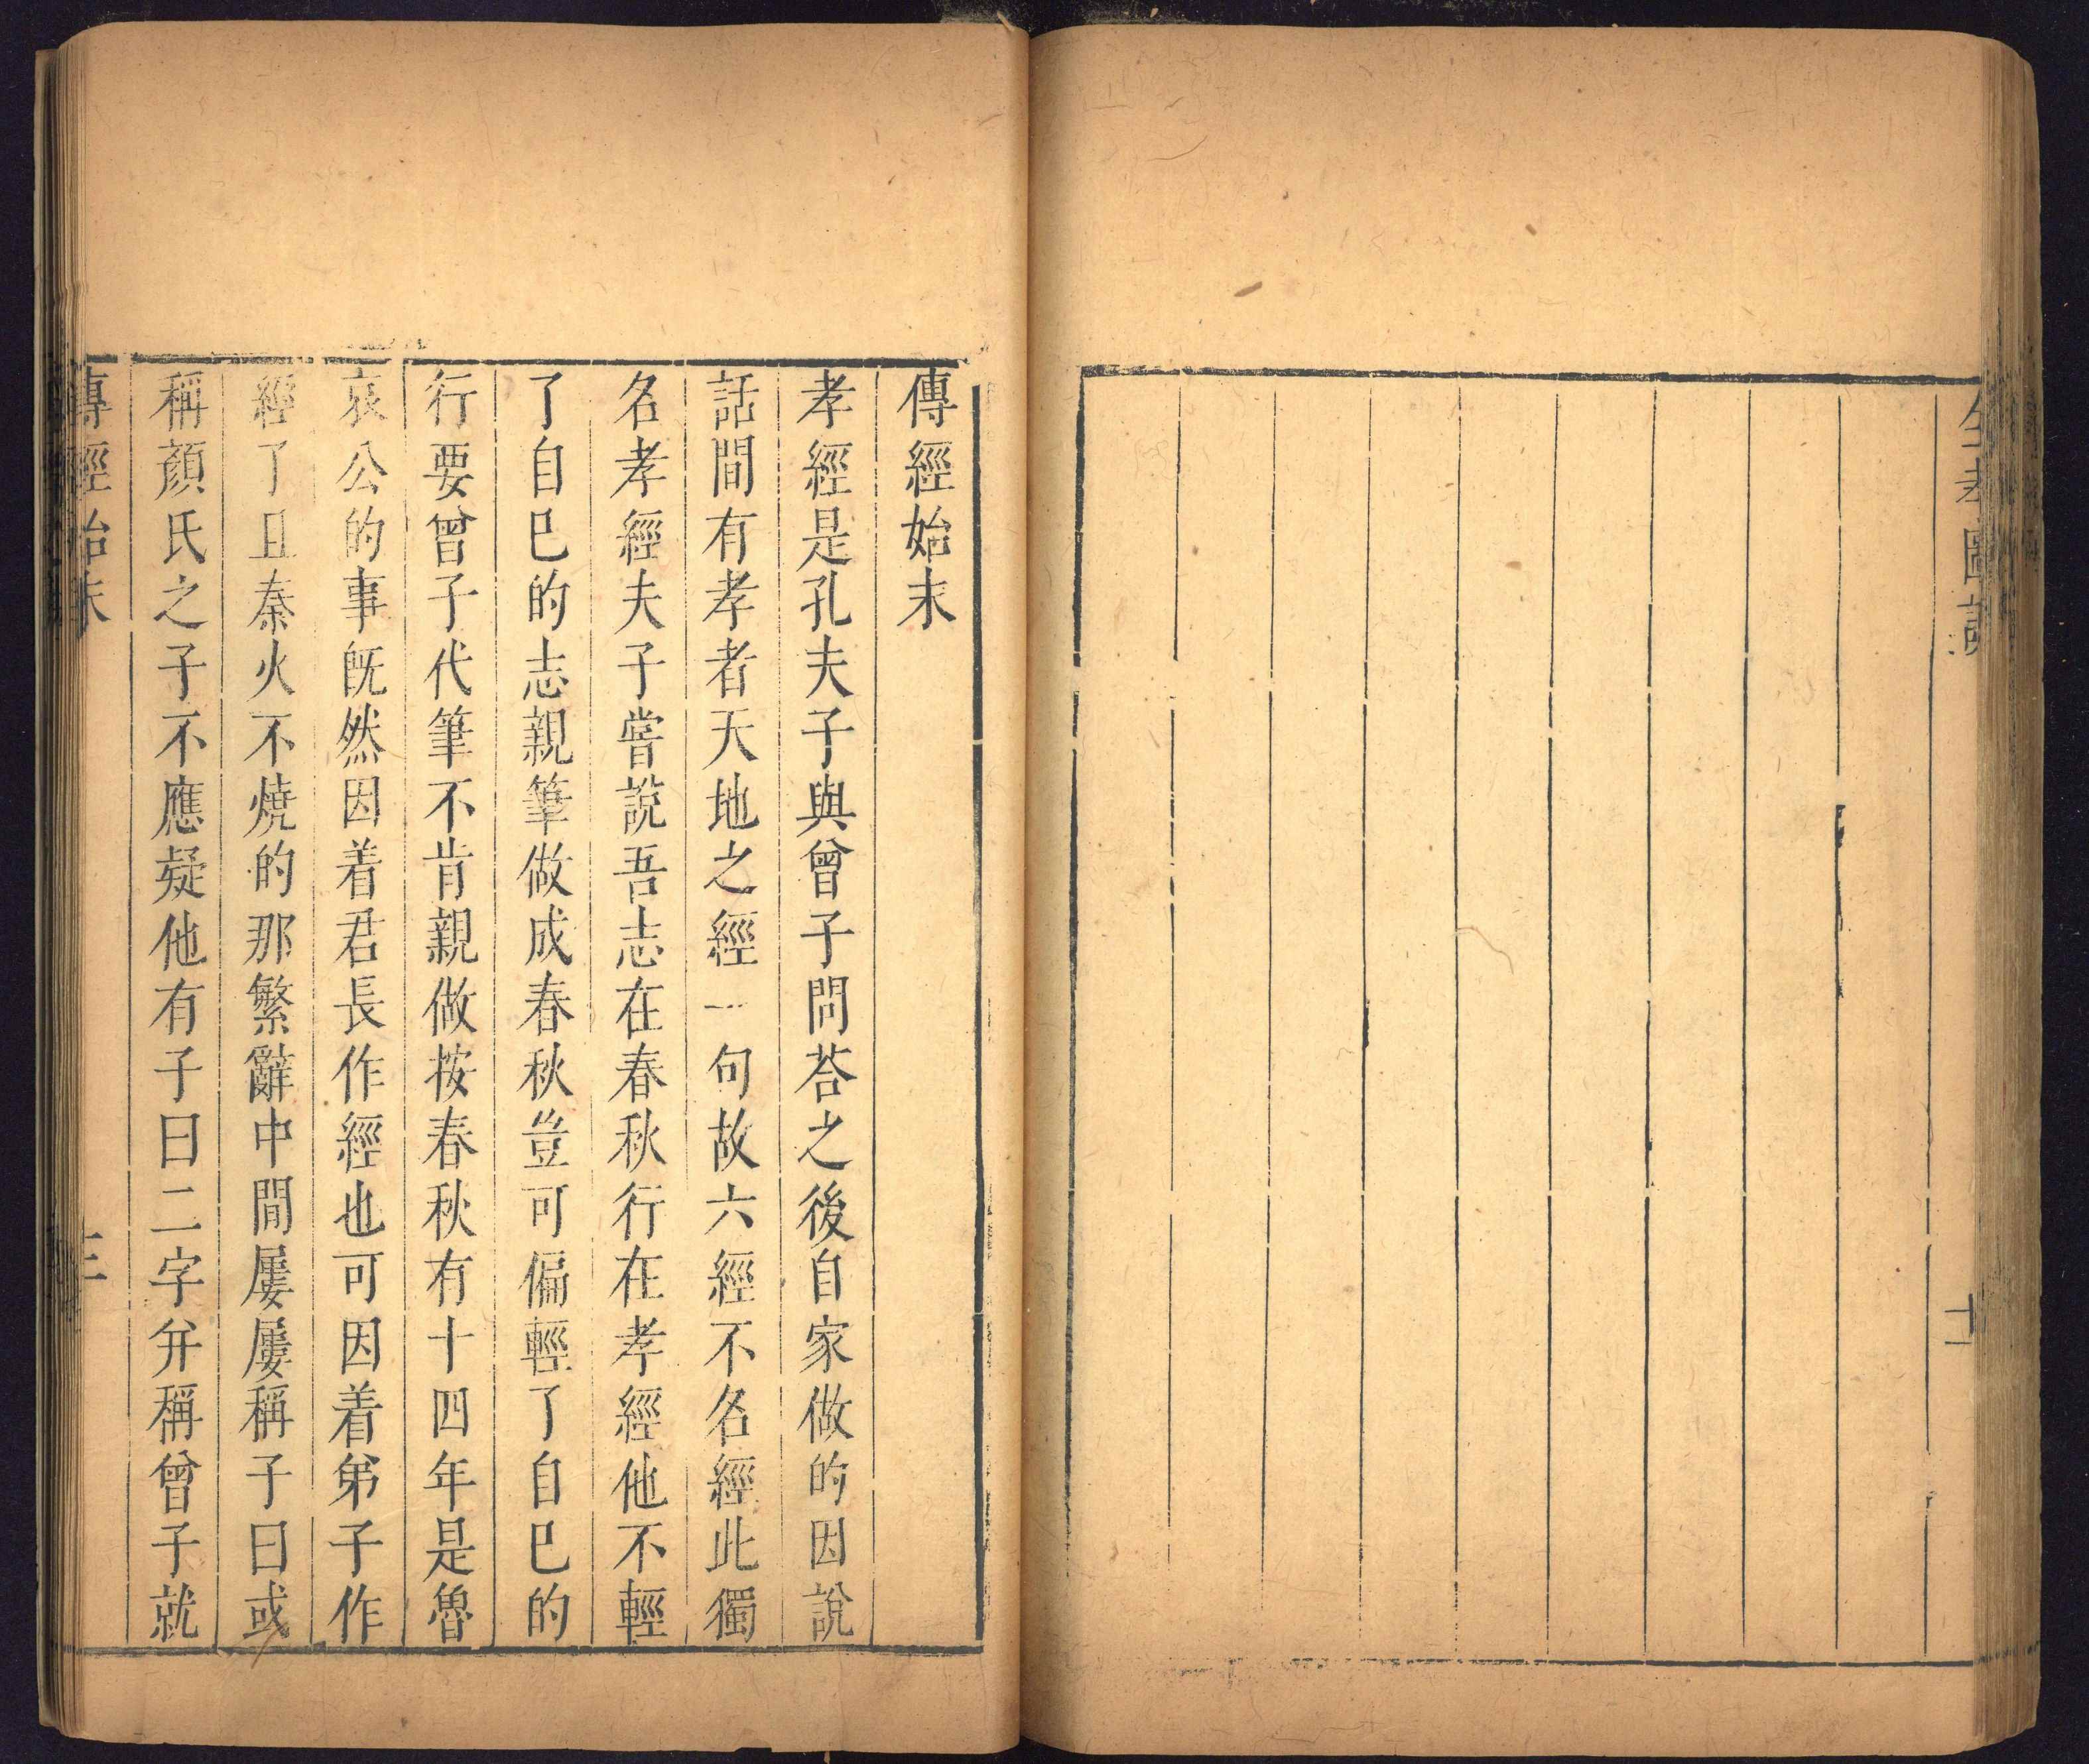 全孝圖說
十一
傳經始末
孝經是孔夫子與曾子問荅之後自家做的因說
話間有孝者天地之經一句故六經不名經此獨
名孝經夫子嘗說吾志在春秋行在孝經他不輕
了自巳的志親筆做成春秋豈可偏輕了自巳的
行要曾子代筆不肯親做按春秋有十四年是魯
哀公的事旣然因着君長作經也可因着弟子作
經了且秦火不燒的那繁辭中間屢屢稱子曰或
稱顔氏之子不應疑他有子曰二字弁稱曾子就
傳經始末
三